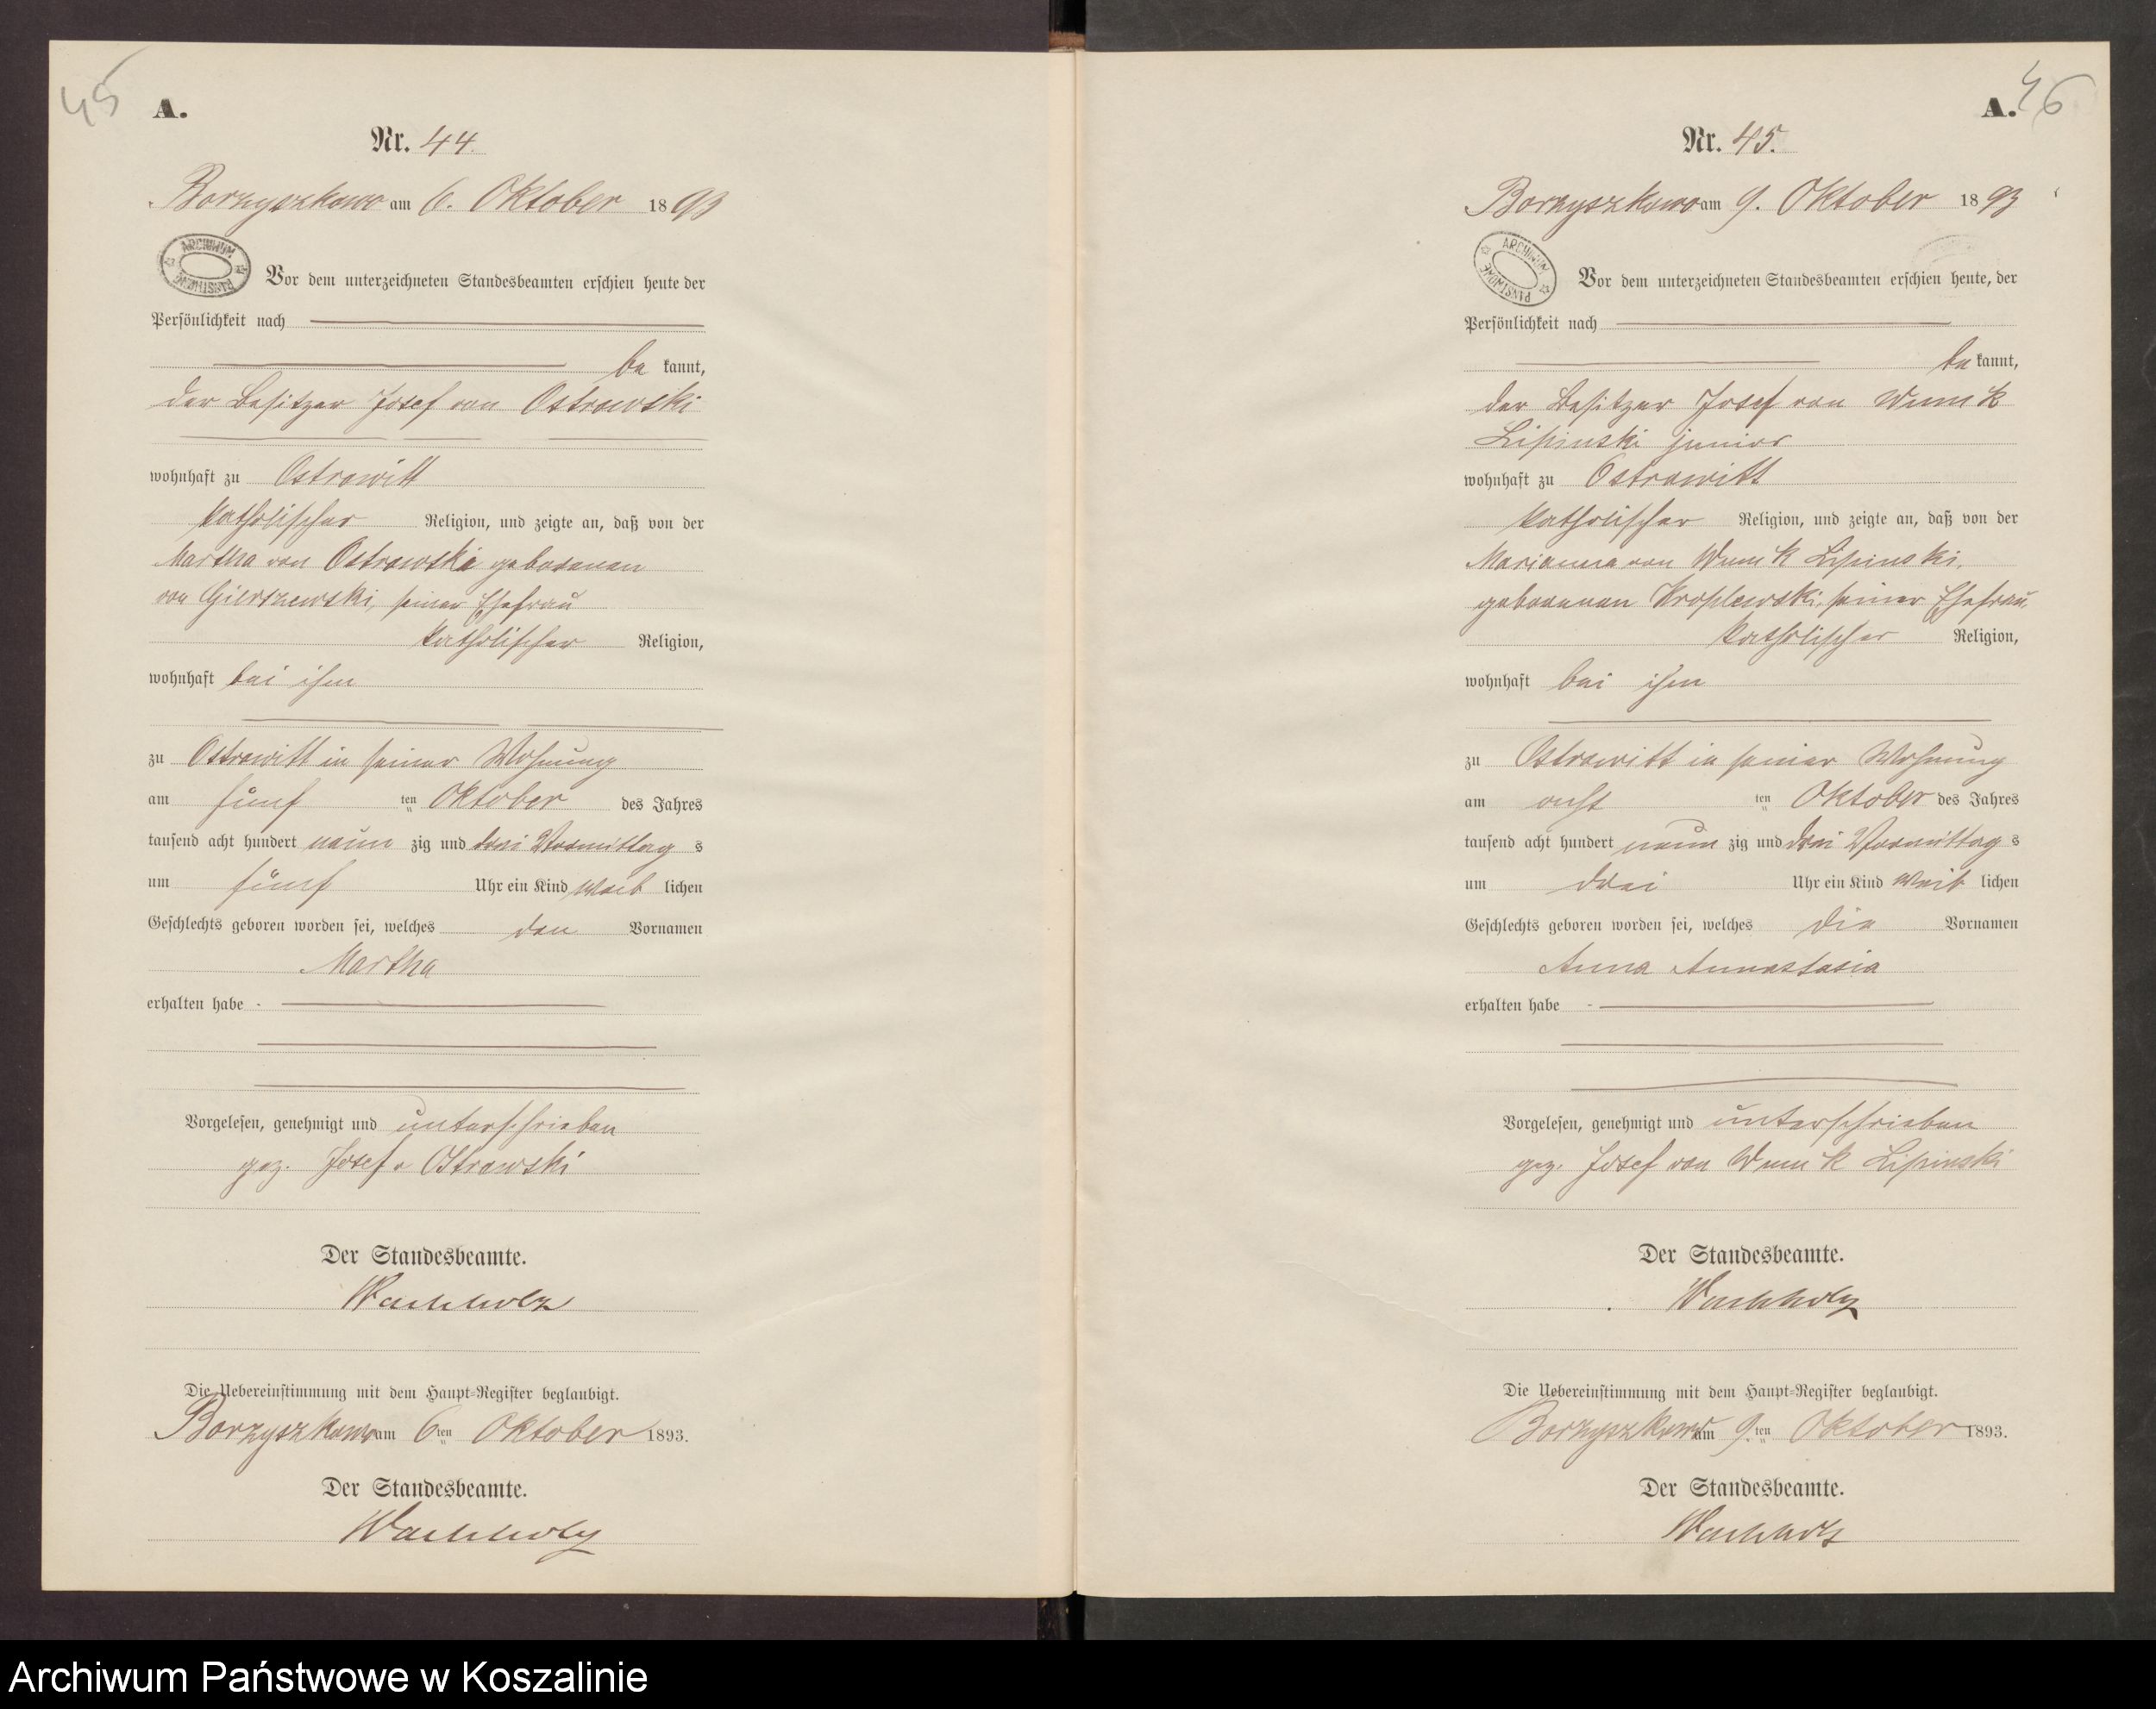 45
A.
Nr. 44.
Borzyszkowo am 6. Oktober 1893
ARCHIWUM PAŃSTWOWE
Vor dem unterzeichneten Standesbeamten erschien heute der
Persönlichkeit nach
be kannt,
der Besitzer Josef von Ostrowski
wohnhaft zu Ostrowitt
katholischer Religion, und zeigte an, daß von der
Martha von Ostrowski geborenen
von Gierszewski, seiner Ehefrau
katholischer Religion,
wohnhaft bei ihm
zu Ostrowitt in seiner Wohnung
am fünf ten Oktober des Jahres
tausend acht hundert neun zig und drei Vormittag s
um fünf Uhr ein Kind weib lichen
Geschlechts geboren worden sei, welches den Vornamen
Martha
erhalten habe
Vorgelesen, genehmigt und unterschrieben
gez. Josef v Ostrowski
Der Standesbeamte.
Wachholz
Die Uebereinstimmung mit dem Haupt-Register beglaubigt.
Borzyszkowo am 6ten Oktober 1893.
Der Standesbeamte.
Wachholz
46
A.
Nr. 45.
Borzyszkowo am 9. Oktober 1893
ARCHIWUM PAŃSTWOWE
Vor dem unterzeichneten Standesbeamten erschien heute, der
Persönlichkeit nach
be kannt,
der Besitzer Josef von Wnuk
Lipinski junior
wohnhaft zu Ostrowitt
katholischer Religion, und zeigte an, daß von der
Marianna von Wnuk Lipinski,
geborenen Kroplewski, seiner Ehefrau,
katholischer Religion,
wohnhaft bei ihm
zu Ostrowitt in seiner Wohnung
am acht ten Oktober des Jahres
tausend acht hundert neun zig und drei Vormittag s
um drei Uhr ein Kind weib lichen
Geschlechts geboren worden sei, welches die Vornamen
Anna Annastasia
erhalten habe
Vorgelesen, genehmigt und unterschrieben
gez. Josef von Wnuk Lipinski
Der Standesbeamte.
Wachholz
Die Uebereinstimmung mit dem Haupt-Register beglaubigt.
Borzyszkowo am 9.ten Oktober 1893.
Der Standesbeamte.
Wachholz
Archiwum Państwowe w Koszalinie